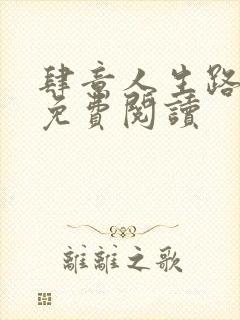 肆意人生路
免費閱讀
離離之歌